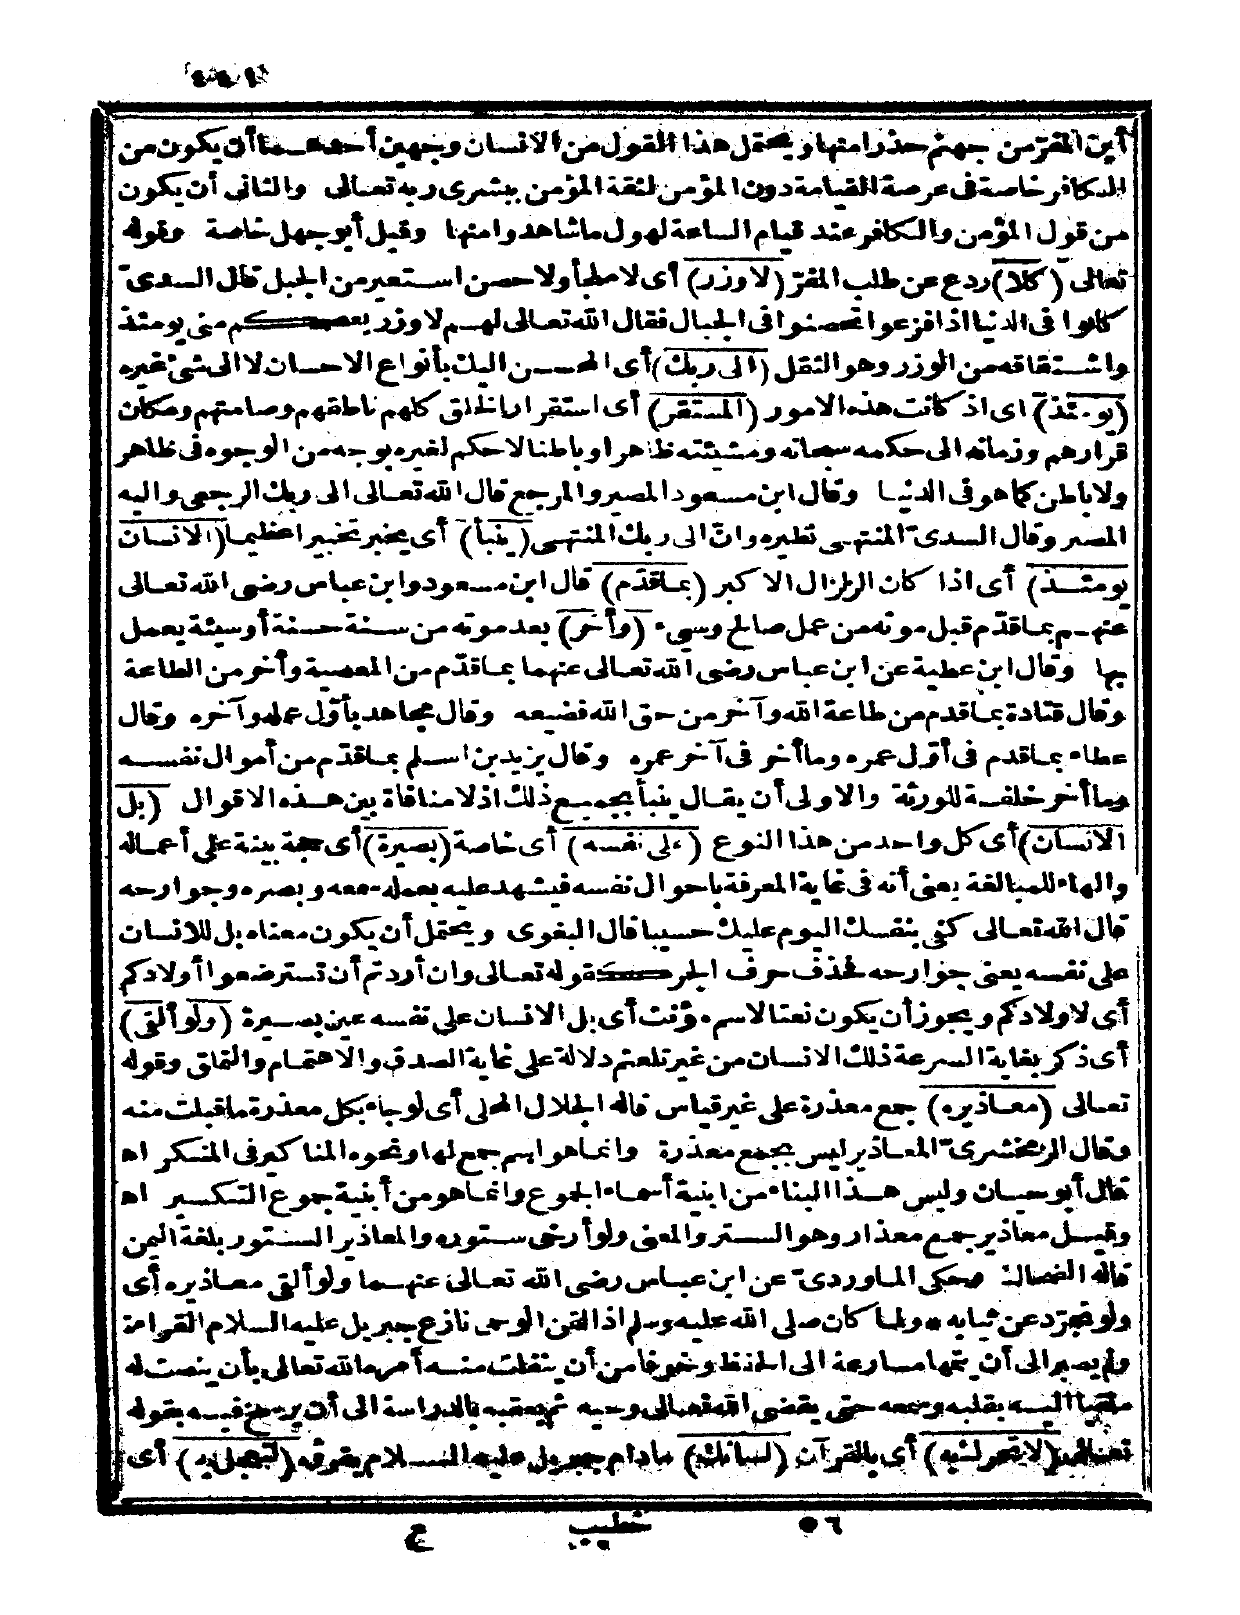 أين المفرّ من جهنم حذرا منها ويحتمل هذا القول من الانسان وجهين أحدهـما أن يكون من
الـكافر خاصة فى عرصة القيامة دون المؤمن لثقة المؤمن ببشرى ربه تعـالى والثانى أن يكون
من قول المؤمن والـكافر عند قيام الساعة لهول ما شاهدوا منها وقيل أبو جهل خاصة وقوله
تعالى (كلا) ردع عن طلب المفرّ (لا وزر) أى لا ملجأ ولا حصن استعير من الجبل قال السدىّ
كانوا فى الدنيا اذا فزعوا تحصنوا فى الجبال فقال الله تعالى لهـم لا وزر يعصمكم منى يومئذ
واشـتقاقه من الوزر وهو الثقل (الى ربك) أى المحـسن اليك بأنواع الاحسان لا الى شئ غيره
(يومئذ) اى اذ كانت هذه الامور (المستقر) أى استقرار الخلق كلهم ناطقهم وصامتهم ومكان
قرارهم وزمانه الى حكمه سبحانه ومشيئته ظاهرا وباطنا لا حكم لغيره بوجه من الوجوه فى ظاهر
ولا باطن كما هو فى الدنيا وقال ابن مسعود المصير والمرجع قال الله تعالى الى ربك الرجعى واليه
المصير وقال السدىّ المنتهـى نظيره وانّ الى ربك المنتهـى (ينبأ) أى يخبر تخبيرا عظيما (الانسان
يومئـذ) أى اذا كان الزلزال الاكبر (بمـا قدّم) قال ابن مسعود وابن عباس رضى الله تعالى
عنهـم بما قدّم قبل موته من عمل صالح وسيء (وأخر) بعد موته من سـنة حسنة أو سيئة يعمل
بها وقال ابن عطية عن ابن عباس رضى الله تعالى عنهما بما قدّم من المعصية وأخر من الطاعة
وقال قتادة بمـا قدم من طاعة الله وأخر من حق الله فضيعه وقال مجاهد بأوّل عمله وآخره وقال
عطاء بمـا قدم فى أوّل عمره وما أخر فى آخر عمره وقال يزيد بن اسـلم بمـا قدّم من أموال نفسـه
وما أخر خلفـه للورثة والاولى أن يقـال ينبأ بجميـع ذلك اذ لا منافاة بين هـذه الاقوال (بل
الانسان) أى كل واحد من هذا النوع (على نفسه) أى خاصة (بصيرة) أى حجة بينة على أعماله
والهاء للمبالغة يعنى أنه فى غاية المعرفة باحوال نفسه فيشهد عليه بعمله سمعه وبصره وجوارحه
قال الله تعـالى كفى بنفسك اليوم عليك حسيبا قال البغوى ويحتمل أن يكون معناه بل للانسان
على نفسه يعنى جوارحه فحذف حرف الجر كقوله تعـالى وان أردتم أن تسترضعوا أولادكم
أى لاولادكم ويجوز أن يكون نعتا لاسم مؤنث أى بل الانسان على نفسه عين بصـيرة (ولو ألقى)
أى ذكر بغاية السرعة ذلك الانسان من غير تلعثم دلالة على غاية الصدق والاهتمام والتملق وقوله
تعـالى (معـاذيره) جمع معذرة على غير قياس قاله الجلال المحلى أى لو جاء بكل معذرة ما قبلت منه
وقال الزمخشرىّ المعـاذير ليس بجمع معذرة وانمـا هو اسم جمع لها ونحوه المناكير فى المنـكر اه
قال أبو حيـان وليس هـذا البناء من ابنية أسماء الجموع وانمـا هو من أبنية جموع التـكسير اه
وقيـل معاذير جمع معذار وهو السـتر والمعنى ولو أرخى سـتوره والمعاذير السـتور بلغة اليمن
قاله الضحاك وحكى المـاوردىّ عن ابن عبـاس رضى الله تعـالى عنهـما ولو ألقى معـاذيره أى
ولو تجرّد عن ثيابه * ولمـا كان صلى الله عليه وسلم اذا لقن الوحى نازع جبريل عليه السلام القراءة
ولم يصبر الى أن يتمها مسارعة الى الحفظ وخوفا من أن ينفلت منـه أمره الله تعالى بأن ينصت له
ملقيا اليـه بقلبه وسمعه حتى يقضى الله تعـالى وحيه ثم يعقبه بالدراسة الى أن يرسخ فيـه بقوله
تعـالى (لا تحرك به) أى بالقرآن (لسانك) ما دام جبريل عليه السـلام يقرؤه (لتعجل به) أى
٥٦ خطيب ع